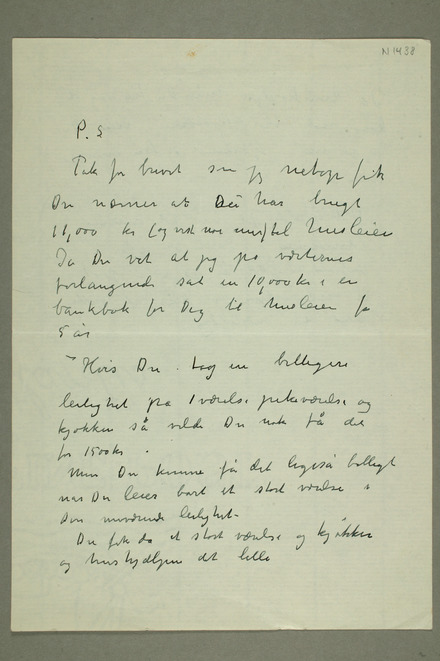 N 1438
P. S
Tak for brevet som jeg netop fik
Du nævner at Du har brugt
11,000 kr (og vist noe mer) til husleien
Ja Du vet at jeg på værternes
forlangende sat in 10,000 kr i en
bankbok for Dig til husleien for
5 år
Hvis Du tog en billigere
leilighet på 1 værelse pikeværelse og
kjøkken så vilde Du nok få det
for 1500 kr.
Men Du kunne få det ligeså billigt
når Du leier bort et stort værelse i
Din nuværende leilighet
Du fik da et stort værelse og kjøkken
og hushjelpen det lille